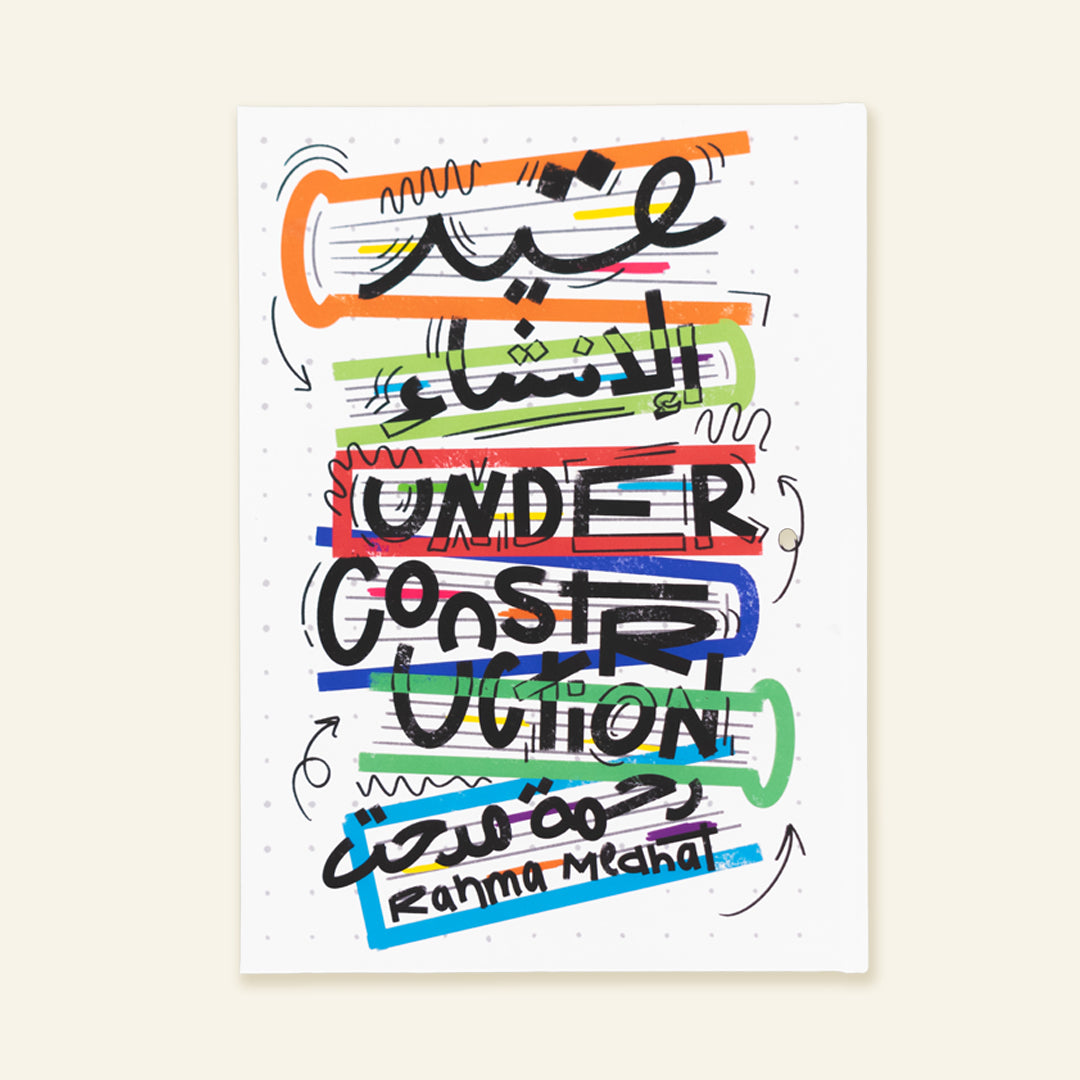 قيد
الإنشاء
UNDER
CONSTR
UCTiON
رحمة مدحت
Rahma Medhat